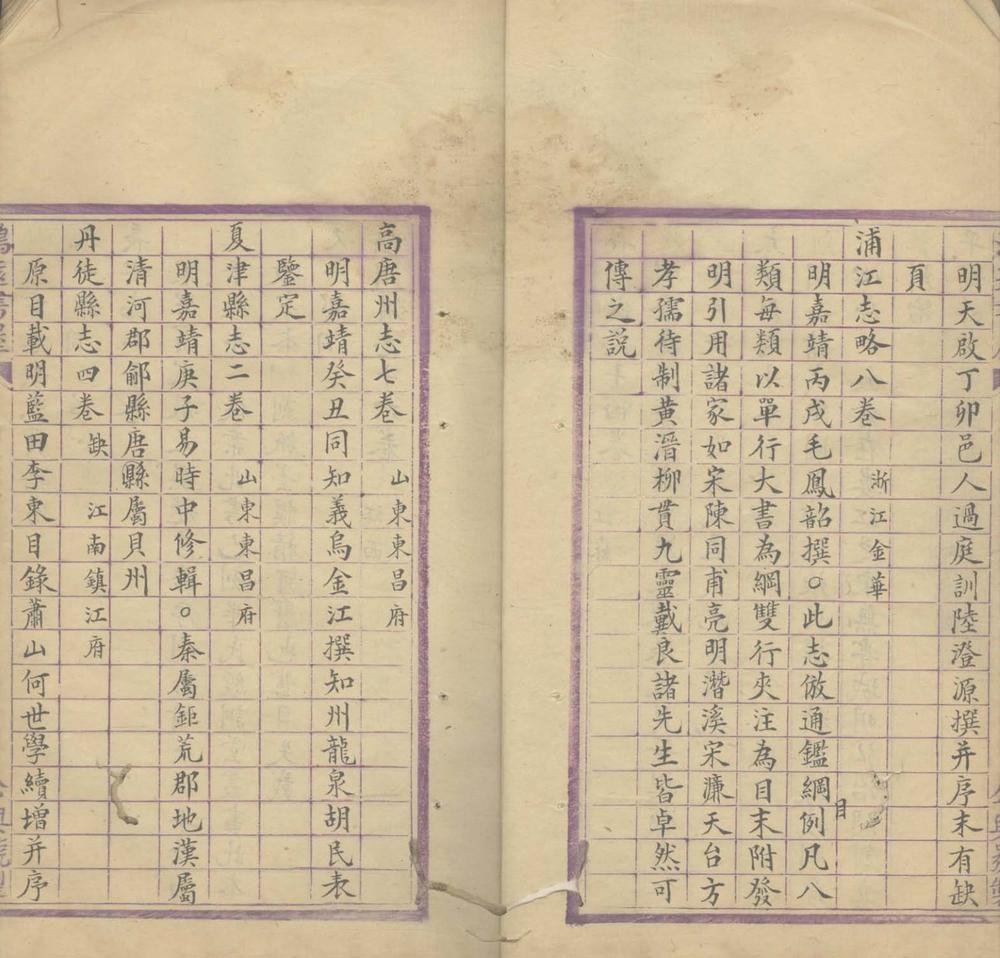 明天啟丁卯邑人過庭訓陸澄源撰并序末有缺
頁
浦江志略八卷 浙江金華
明嘉靖丙戌毛鳳韶撰○此志倣通鑑綱目例凡八
類每類以單行大書為綱雙行夾注為目末附發
明引用諸家如宋陳同甫亮明潛溪宋濂天台方
孝孺待制黃溍柳貫九靈戴良諸先生皆卓然可
傳之説
高唐州志七卷 山東東昌府
明嘉靖癸丑同知義烏金江撰知州龍泉胡民表
鑒定
夏津縣志二卷 山東東昌府
明嘉靖庚子易時中修輯○秦屬鉅荒郡地漢屬
清河郡鄃縣唐縣屬貝州
丹徒縣志四卷 缺 江南鎮江府
原目載明藍田李東目錄蕭山何世學續增并序